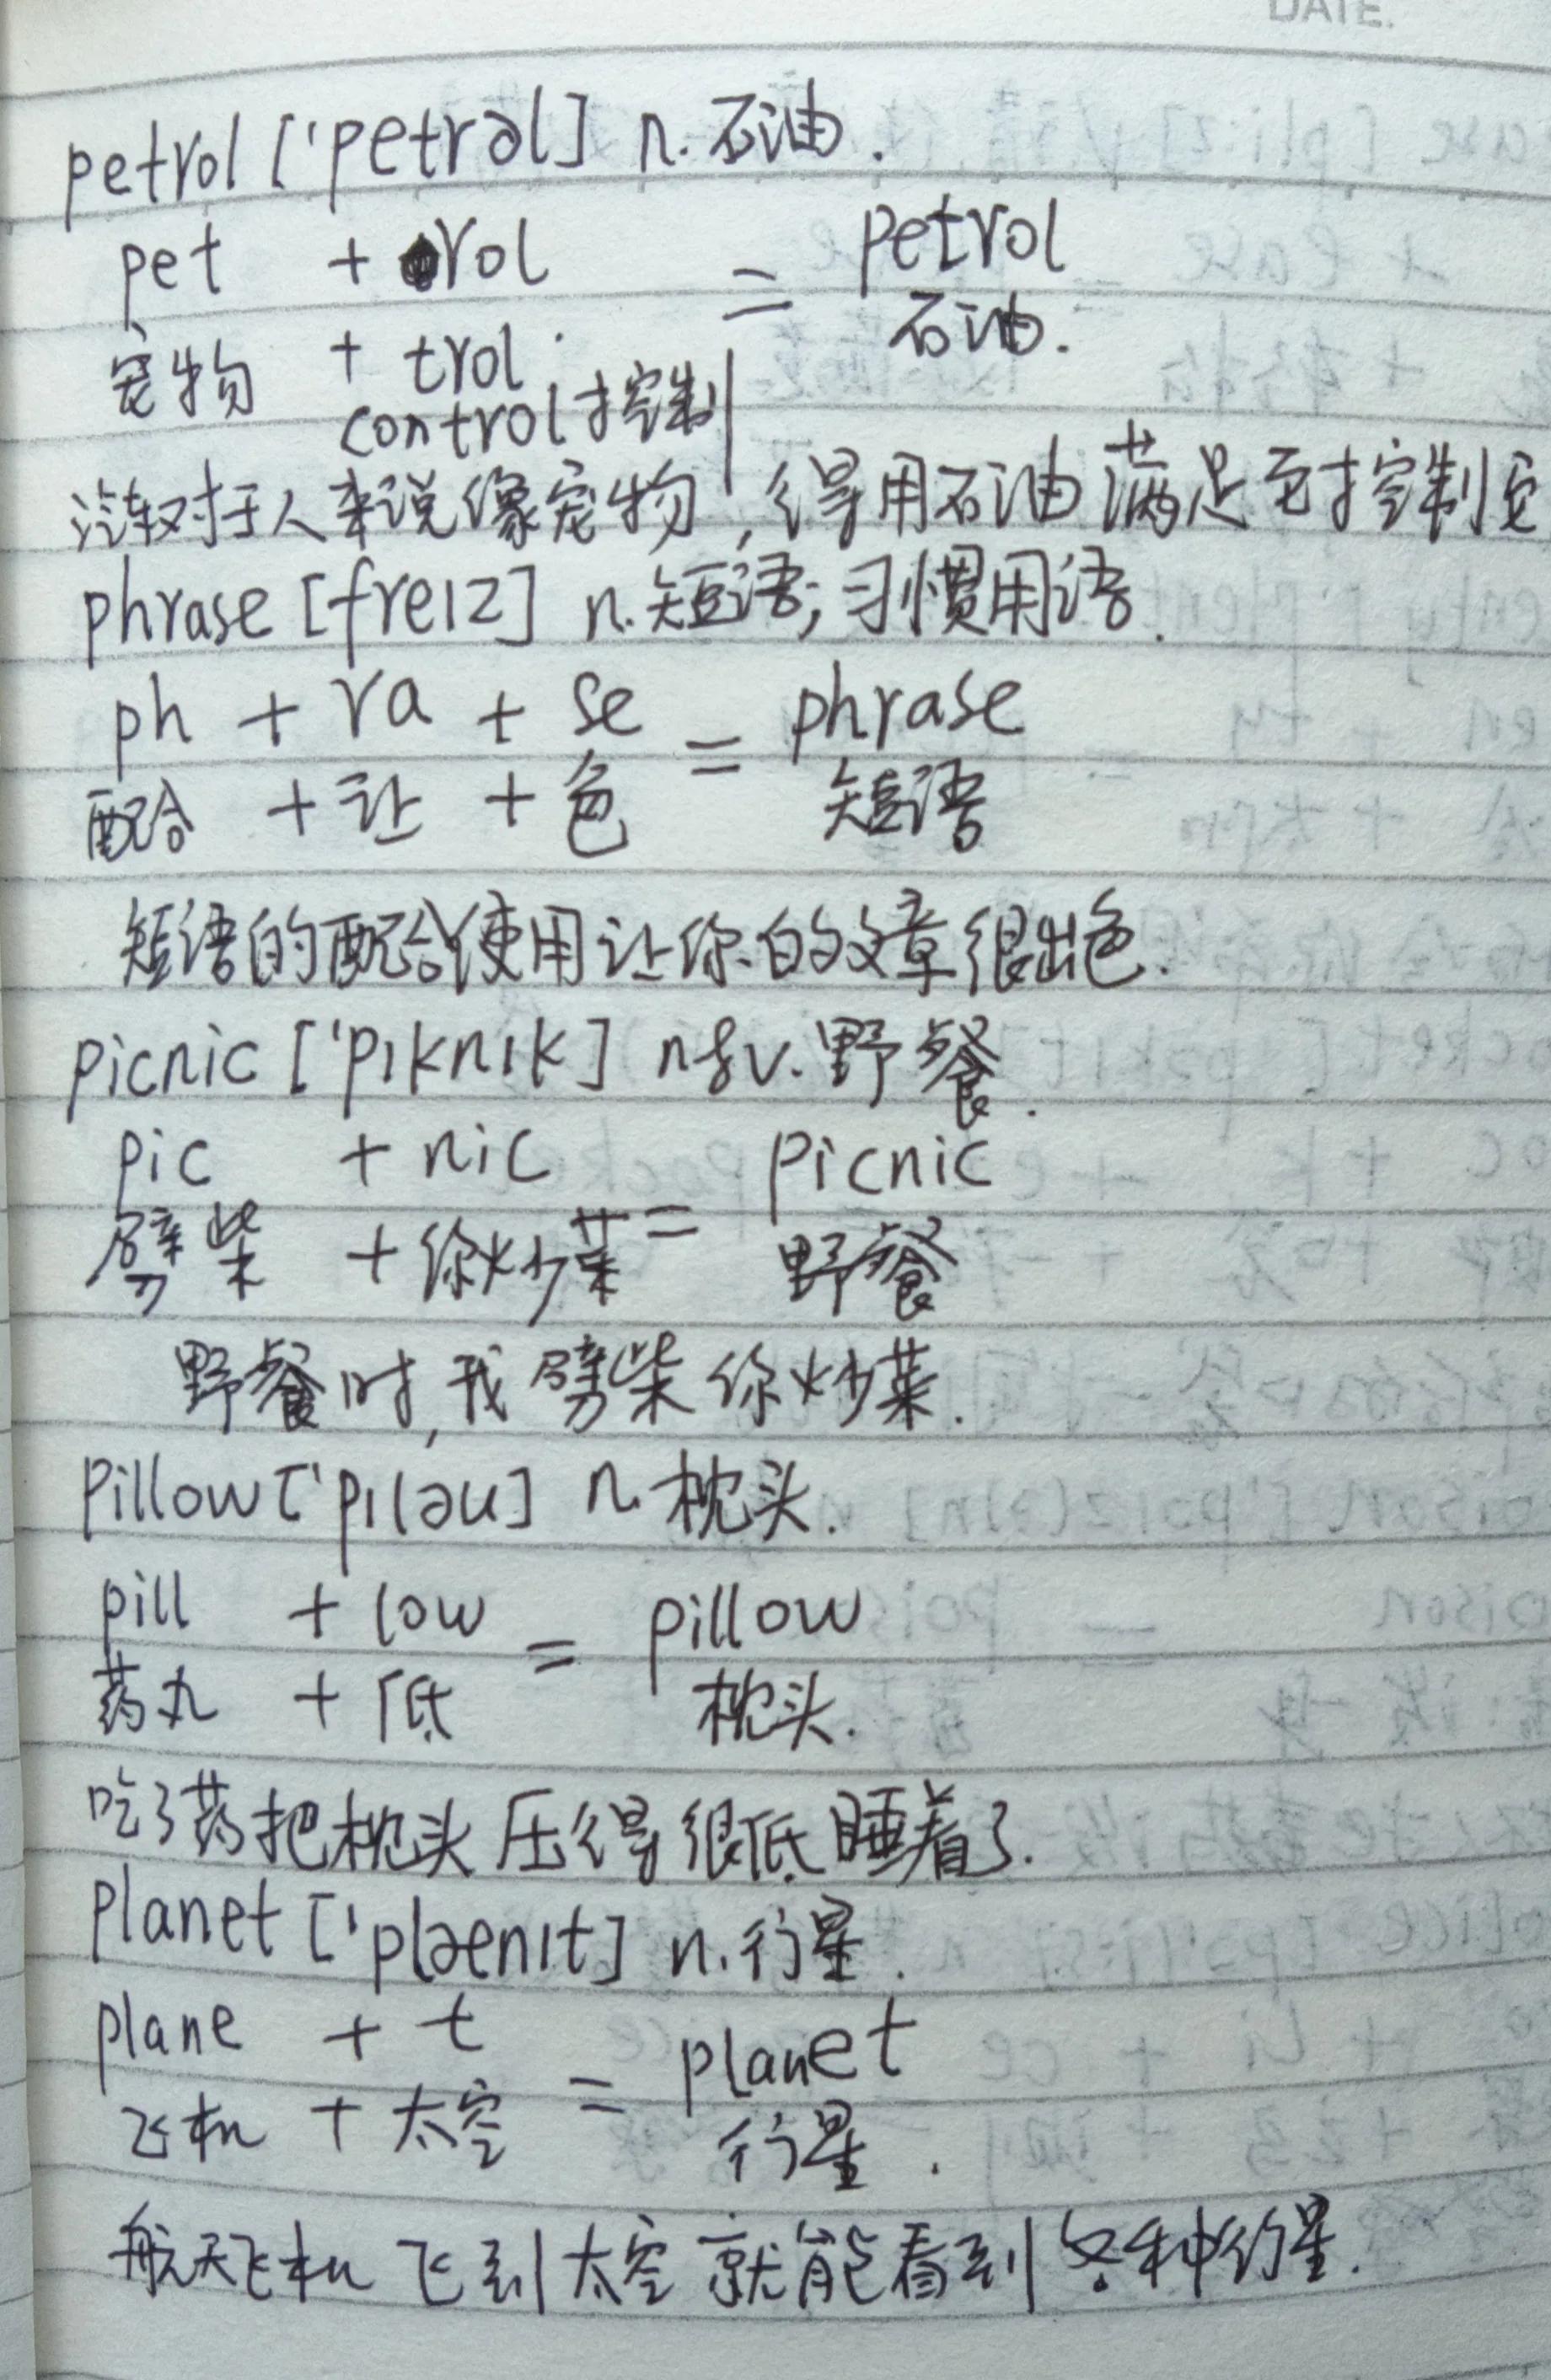 DATE.
petrol ['petrəl] n. 石油.
pet + rol = petrol
宠物 + trol 石油.
control 控制
汽车对于人来说像宠物,得用石油满足和控制它
phrase [freiz] n.短语;习惯用语.
ph + ra + se = phrase
配合 + 让 + 色 短语
短语的配合使用让你的文章很出色.
picnic ['piknik] n&v.野餐.
pic + nic = picnic
劈柴 + 你炒菜 野餐
野餐时,我劈柴你炒菜.
pillow ['piləu] n.枕头.
pill + low = pillow
药丸 + 低 枕头.
吃了药把枕头压得很低睡着了.
planet ['plænit] n.行星.
plane + t = planet
飞机 + 太空 行星.
航天飞机飞到太空就能看到各种行星.